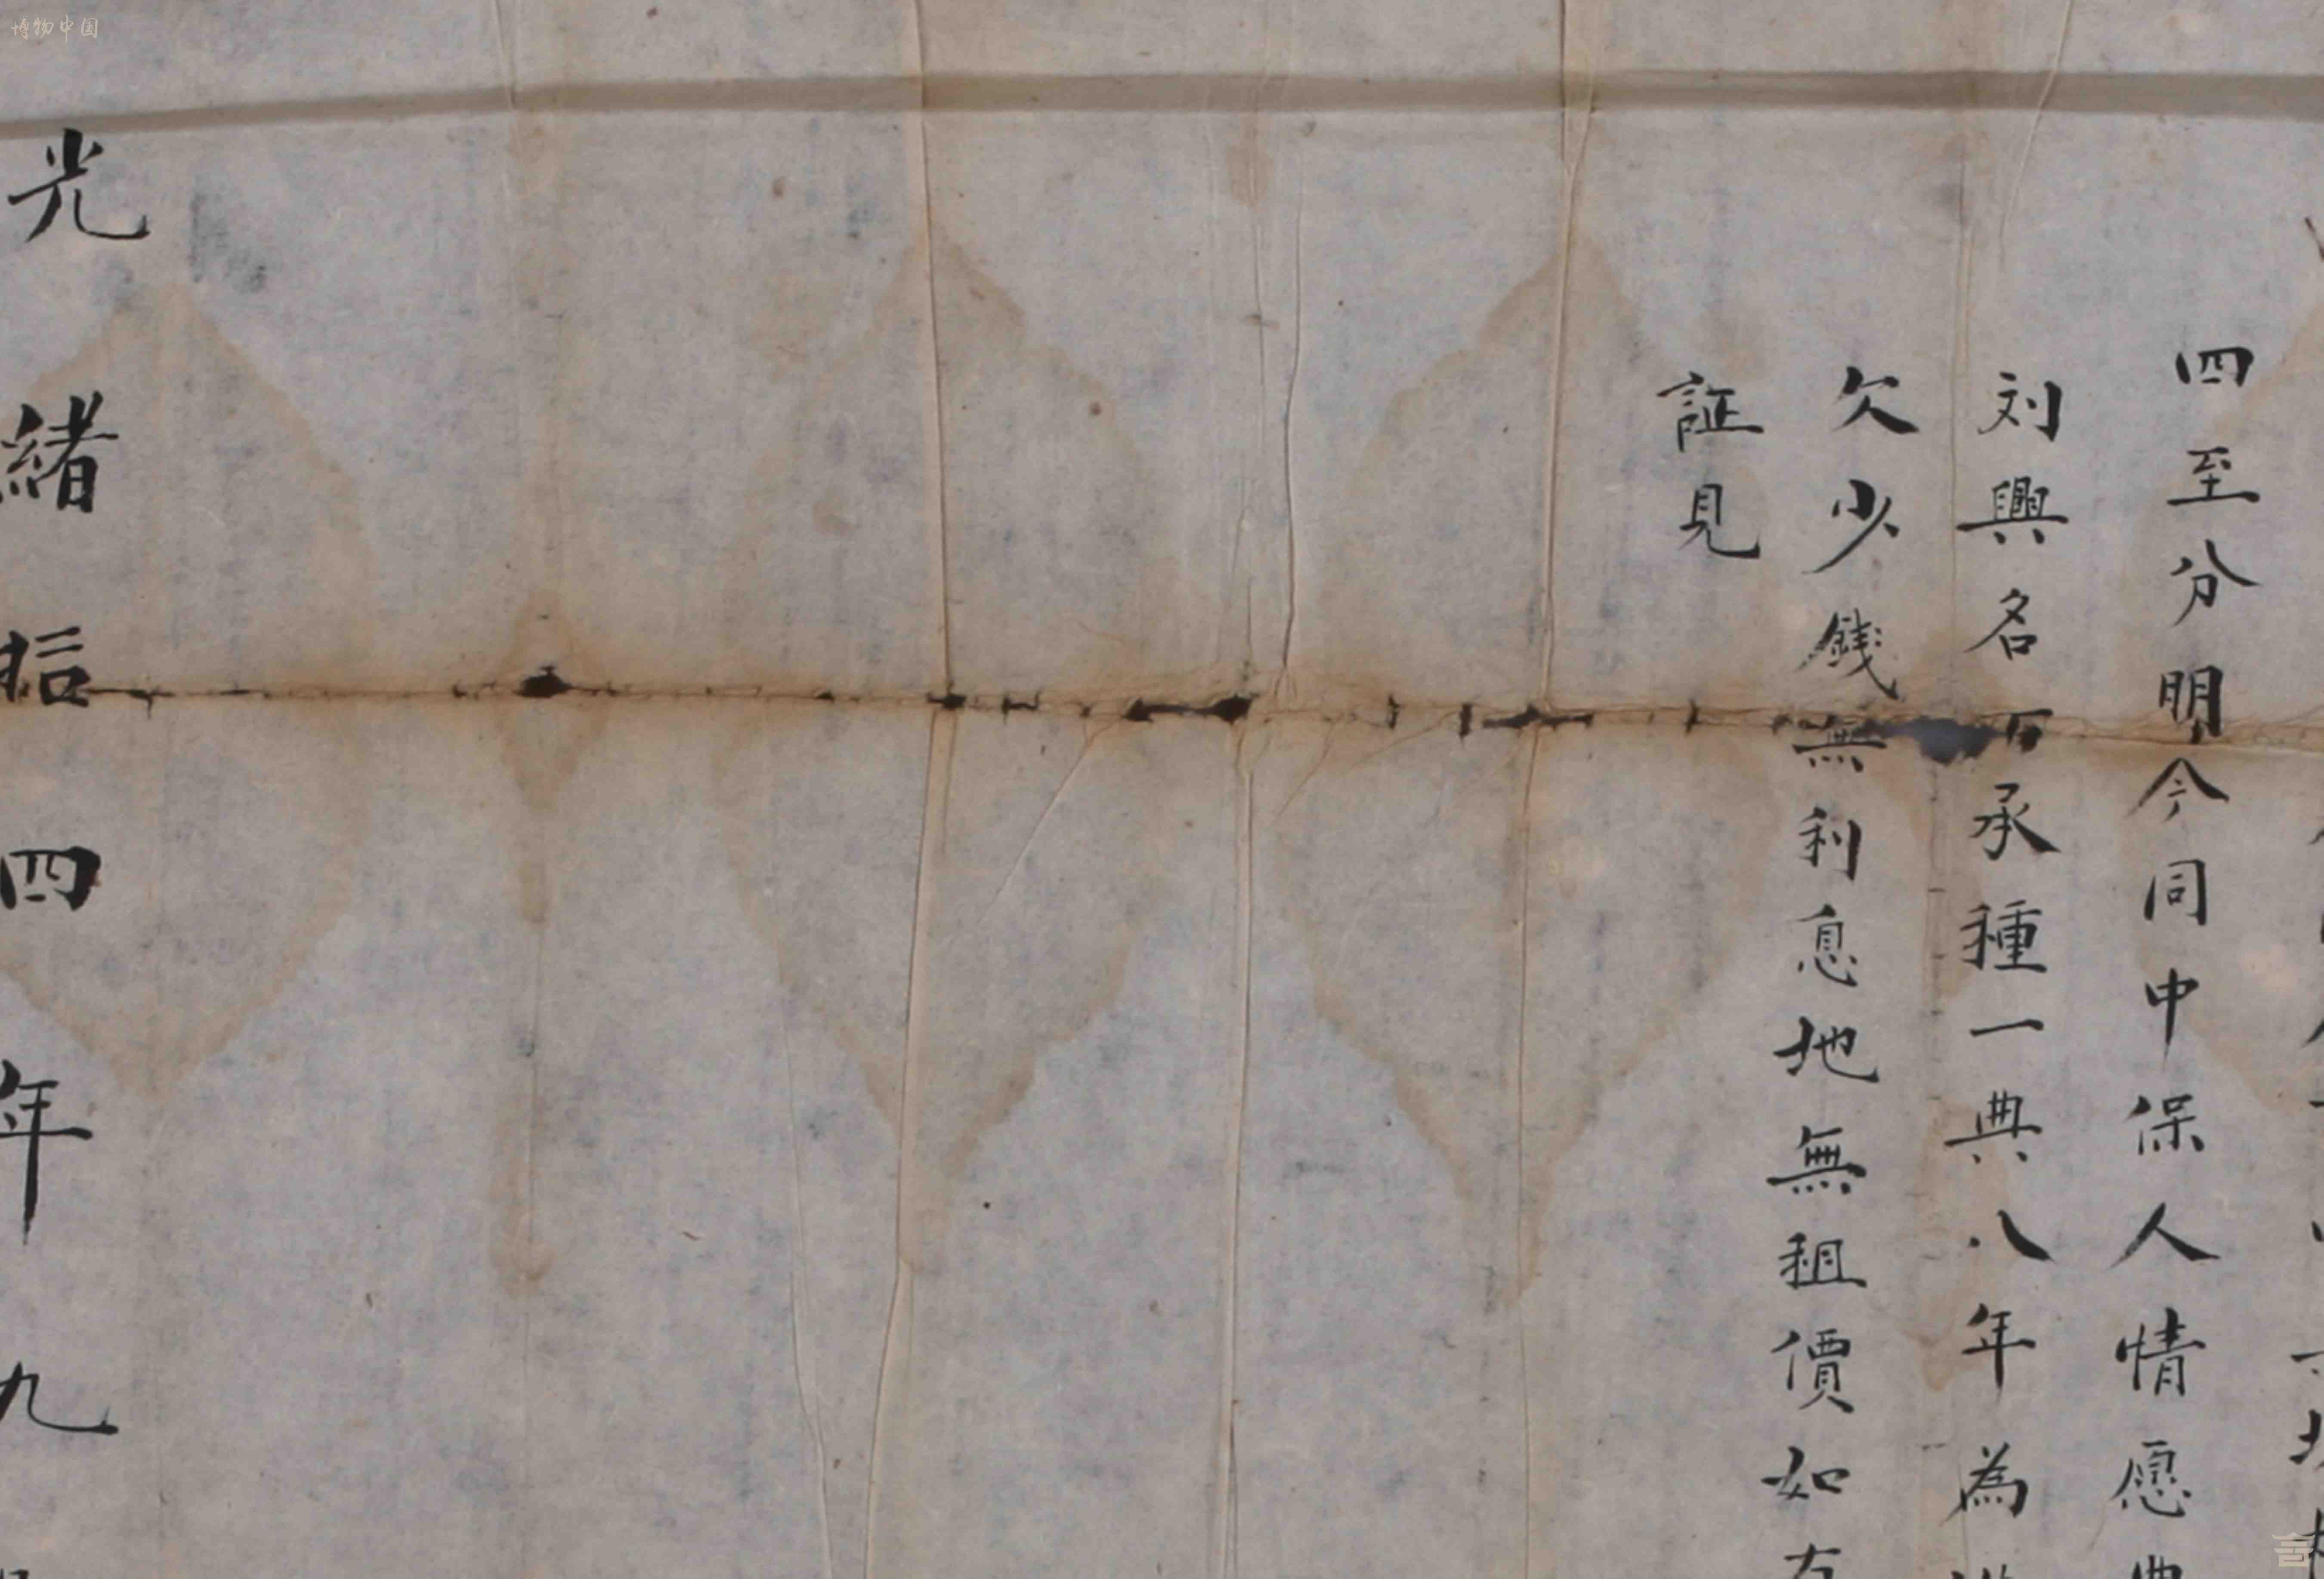 四至分明今同中保人情愿典
刘興名下承種一典八年為
欠少銭無利息地無租價如有
証見
光緒拾四年九
博物中国